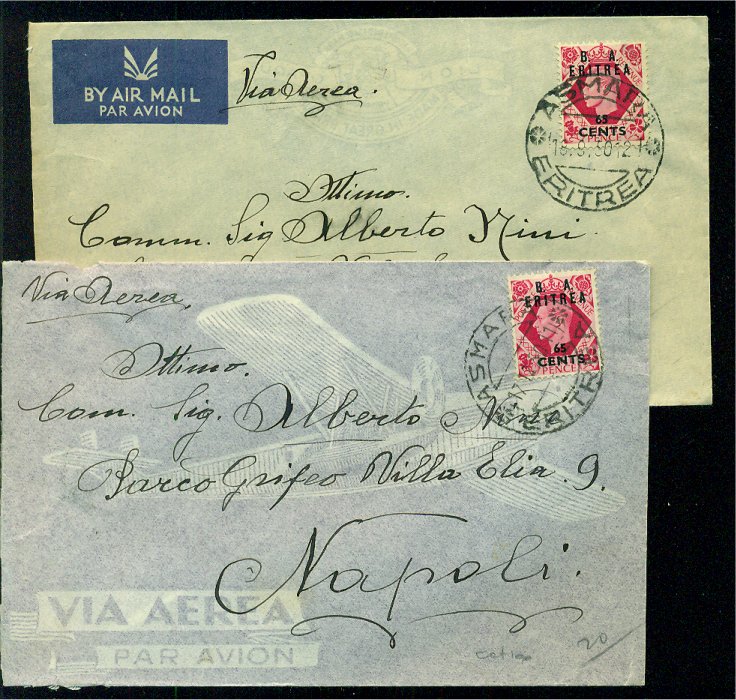 BY AIR MAIL
PAR AVION
Via Aerea.
B. A.
ERITREA
65
CENTS
ASMARA
18.9.50 12
ERITREA
Ottimo.
Comm. Sig Alberto Nini
Via Aerea,
B. A.
ERITREA
65
CENTS
PENCE
ASMARA
ERITREA
Ottimo.
Com. Sig. Alberto Nini
Parco Grifeo Villa Elia 9.
Napoli.
VIA AEREA
PAR AVION
20